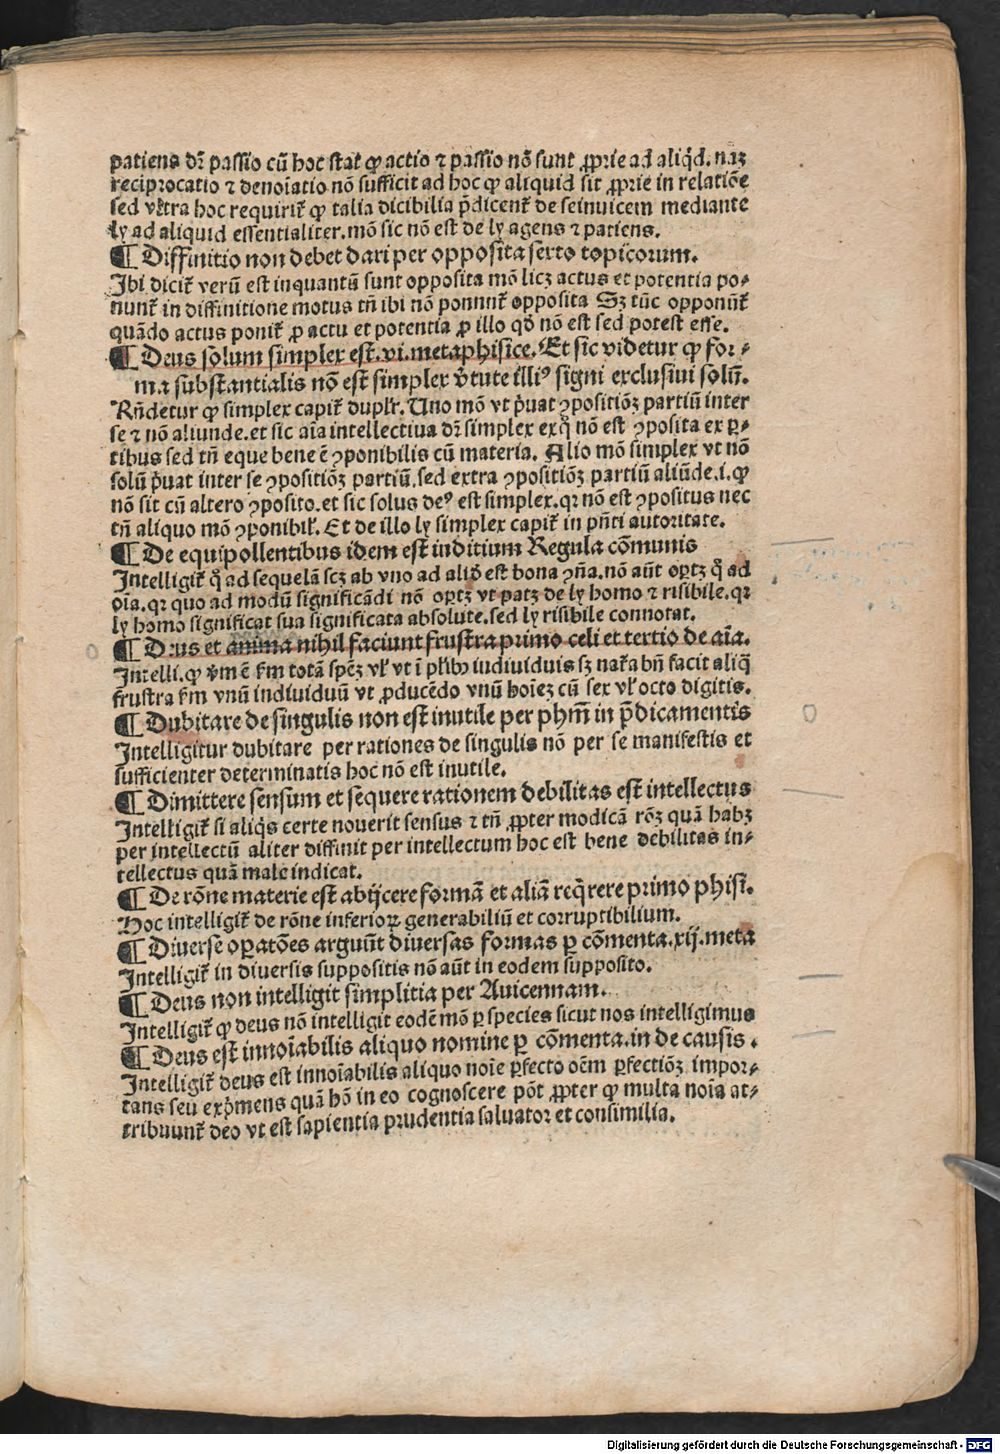 patiens dr̃ passio cũ hoc stat ꝙ actio ⁊ passio nõ sunt ꝓprie ad aliq̃d. naꝫ
reciprocatio ⁊ denoĩatio nõ sufficit ad hoc ꝙ aliquid sit ꝓprie in relatiõe
sed vłtra hoc requirit̃ ꝙ talia dicibilia p̃dicent̃ de seinuicem mediante
ly ad aliquid essentialiter. mõ sic nõ est de ly agens ⁊ patiens.
¶ Diffinitio non debet dari per opposita serto topicorum.
Ibi dicit̃ verũ est inquantũ sunt opposita mõ licꝫ actus et potentia po⸗
nunt̃ in diffinitione motus tñ ibi nõ ponunt̃ opposita Sꝫ tũc opponũt̃
quãdo actus ponit̃ ꝓ actu et potentia ꝓ illo qđ nõ est sed potest esse.
¶ Deus solum simplex est. vi. metaphisice. Et sic videtur ꝙ for⸗
ma substantialis nõ est simplex v̓tute illiꝰ signi exclusiui solũ.
Rñdetur ꝙ simplex capit̃ duplr̃. Uno mõ vt p̓uat ꝯpositiõꝫ partiũ inter
se ⁊ nõ aliunde. et sic aĩa intellectiua dr̃ simplex exq̃ nõ est ꝯposita ex ꝑ⸗
tibus sed tñ eque bene ẽ ꝯponibilis cũ materia. Alio mõ simplex vt nõ
solũ p̓uat inter se ꝯpositiõꝫ partiũ. sed extra ꝯpositiõꝫ partiũ aliũde. i. ꝙ
nõ sit cũ altero ꝯposito. et sic solus deꝰ est simplex. qꝛ nõ est ꝯpositus nec
tñ aliquo mõ ꝯponibił. Et de illo ly simplex capit̃ in pñti autoritate.
¶ De equipollentibus idem est iuditium Regula cõmunis
Intelligit̃ q̃ ad sequelã scꝫ ab vno ad aliđ est bona ꝯña. nõ aũt oꝑtꝫ q̃ ad
oĩa. qꝛ quo ad modũ significãdi nõ oꝑtꝫ vt patꝫ de ly homo ⁊ risibile. qꝛ
ly homo significat sua significata absolute. sed ly risibile connotat.
¶ Deus et anima nihil faciunt frustra primo celi et tertio de aĩa.
Intelli. ꝙ v̓m ẽ ẜm totã spẽꝫ vł vt ĩ pł̓ibꝰ indiuiduis sꝫ nat̃a bñ facit aliq̃
frustra ẜm vnũ indiuiduũ vt ꝓducẽdo vnũ hoĩeꝫ cũ sex vł octo digitis.
¶ Dubitare de singulis non est inutile per phm̃ in p̃dicamentis
Intelligitur dubitare per rationes de singulis nõ per se manifestis et
sufficienter determinatis hoc nõ est inutile.
¶ Dimittere sensum et sequere rationem debilitas est intellectus
Intelligit̃ si aliq̃s certe nouerit sensus ⁊ tñ ꝓpter modicã rõꝫ quã habꝫ
per intellectũ aliter diffinit per intellectum hoc est bene debilitas in⸗
tellectus quã male indicat.
¶ De rõne materie est abijcere formã et aliã reqr̃ere primo phisi.
Hoc intelligit̃ de rõne inferioꝝ generabiliũ et corruptibilium.
¶ Diuerse oꝑatões arguũt diuersas formas ꝑ cõmenta. xij. meta
Intelligit̃ in diuersis suppositis nõ aũt in eodem supposito.
¶ Deus non intelligit simplitia per Auicennam.
Intelligit̃ ꝙ deus nõ intelligit eodẽ mõ ꝑ species sicut nos intelligimus
¶ Deus est innoĩabilis aliquo nomine ꝑ cõmenta. in de causis.
Intelligit̃ deus est innoĩabilis aliquo noĩe ꝑfecto oẽm ꝑfectiõꝫ impor⸗
tans seu exp̓mens quã hõ in eo cognoscere põt ꝓpter ꝙ multa noĩa at⸗
tribuunt̃ deo vt est sapientia prudentia saluator et consimilia.
Digitalisierung gefördert durch die Deutsche Forschungsgemeinschaft - DFG